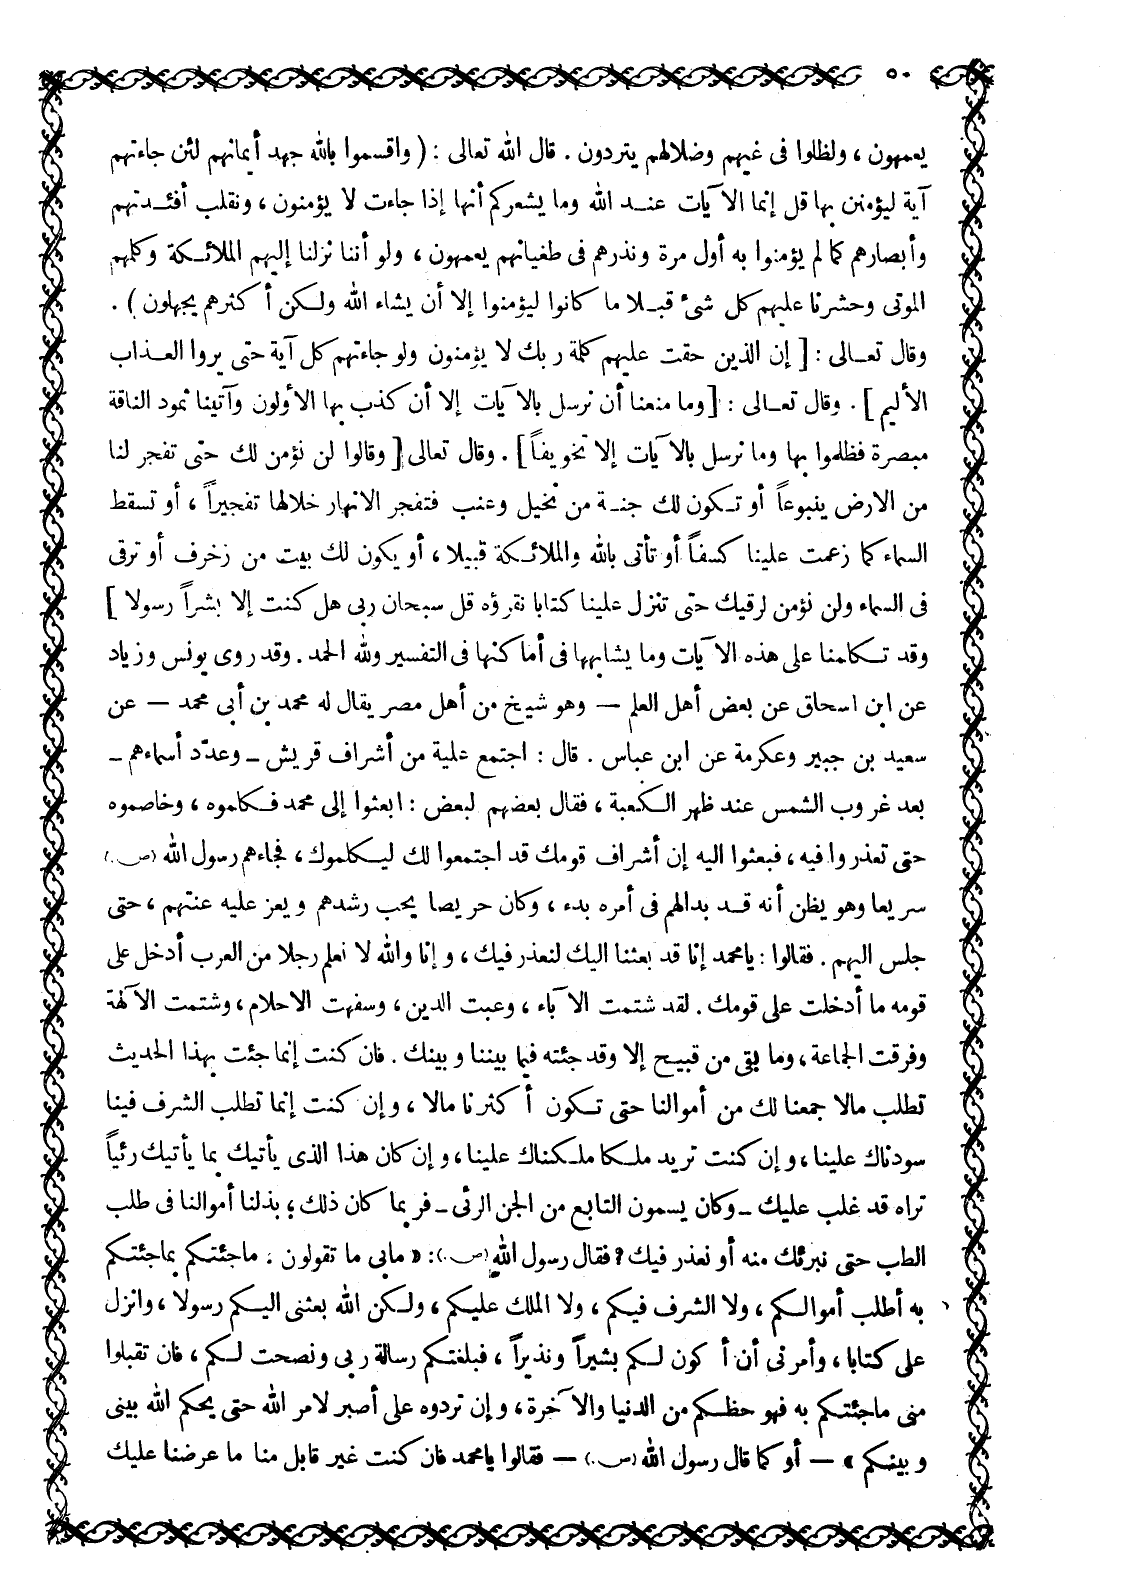 ٥٠
يعمهون ، ولظلوا فى غيهم وضلالهم يتردون . قال الله تعالى : ( واقسموا بالله جهد أيمانهم لئن جاءتهم
آية ليؤمنن بها قل إنما الآيات عنــد الله وما يشعركم أنها إذا جاءت لا يؤمنون ، ونقلب أفئـدتهم
وأبصارهم كما لم يؤمنوا به أول مرة ونذرهم فى طغيانهم يعمهون ، ولو أننا نزلنا إليهم الملائـكة وكلمهم
الموتى وحشرنا عليهم كل شىء قبـلا ما كانوا ليؤمنوا إلا أن يشاء الله ولـكن أكثرهم يجهلون ) .
وقال تعـالى : [ إن الذين حقت عليهم كلمة ربك لا يؤمنون ولو جاءتهم كل آية حتى يروا العـذاب
الأليم ] . وقال تعـالى : [ وما منعنا أن نرسل بالآيات إلا أن كذب بها الأولون وآتينا ثمود الناقة
مبصرة فظلموا بها وما نرسل بالآيات إلا تخويفاً ] . وقال تعالى [ وقالوا لن نؤمن لك حتى تفجر لنا
من الارض ينبوعاً أو تـكون لك جنـة من نخيل وعنب فتفجر الانهار خلالها تفجيراً ، أو تسقط
السماء كما زعمت علينا كسفاً أو تأتى بالله والملائـكة قبيلا ، أو يكون لك بيت من زخرف أو ترقى
فى السماء ولن نؤمن لرقيك حتى تنزل علينا كتابا نقرؤه قل سبحان ربى هل كنت إلا بشراً رسولا ]
وقد تـكلمنا على هذه الآيات وما يشابهها فى أماكنها فى التفسير ولله الحمد . وقد روى يونس وزياد
عن ابن اسحاق عن بعض أهل العلم — وهو شيخ من أهل مصر يقال له محمد بن أبى محمد — عن
سعيد بن جبير وعكرمة عن ابن عباس . قال : اجتمع علية من أشراف قريش ــ وعدّد أسماءهم ــ
بعد غروب الشمس عند ظهر الـكعبة ، فقال بعضهم لبعض : ابعثوا إلى محمد فـكلموه ، وخاصموه
حتى تعذروا فيه ، فبعثوا اليه إن أشراف قومك قد اجتمعوا لك ليـكلموك ، فجاءهم رسول الله (ص.)
سريعا وهو يظن أنه قـد بدالهم فى أمره بدء ، وكان حريصا يحب رشدهم ويعز عليه عنتهم ، حتى
جلس اليهم . فقالوا : يامحمد إنا قد بعثنا اليك لنعذر فيك ، وإنا والله لا نعلم رجلا من العرب أدخل على
قومه ما أدخلت على قومك . لقد شتمت الآباء ، وعبت الدين ، وسفهت الاحلام ، وشتمت الآلهة
وفرقت الجماعة ، وما بقى من قبيـح إلا وقد جئته فيما بيننا وبينك . فان كنت إنما جئت بهذا الحديث
تطلب مالا جمعنا لك من أموالنا حتى تـكون أكثرنا مالا ، وإن كنت إنما تطلب الشرف فينا
سودناك علينا ، وإن كنت تريد ملـكا ملـكناك علينا ، وإن كان هذا الذى يأتيك بما يأتيك رئياً
تراه قد غلب عليك ــ وكان يسمون التابع من الجن الرئى ــ فربما كان ذلك ؛ بذلنا أموالنا فى طلب
الطب حتى نبرئك منه أو نعذر فيك ؟ فقال رسول الله (ص.) : « مابى ما تقولون . ماجئتـكم بماجئتـكم
به أطلب أموالـكم ، ولا الشرف فيكم ، ولا الملك عليـكم ، ولـكن الله بعثنى اليـكم رسولا ، وانزل
على كتابا ، وأمرنى أن أكون لـكم بشيراً ونذيراً ، فبلغتـكم رسالة ربى ونصحت لـكم ، فان تقبلوا
منى ماجئتـكم به فهو حظـكم من الدنيا والآخرة ، وإن تردوه على أصبر لامر الله حتى يحكم الله بينى
وبينـكم » — أو كما قال رسول الله (ص.) — فقالوا يامحمد فان كنت غير قابل منا ما عرضنا عليك